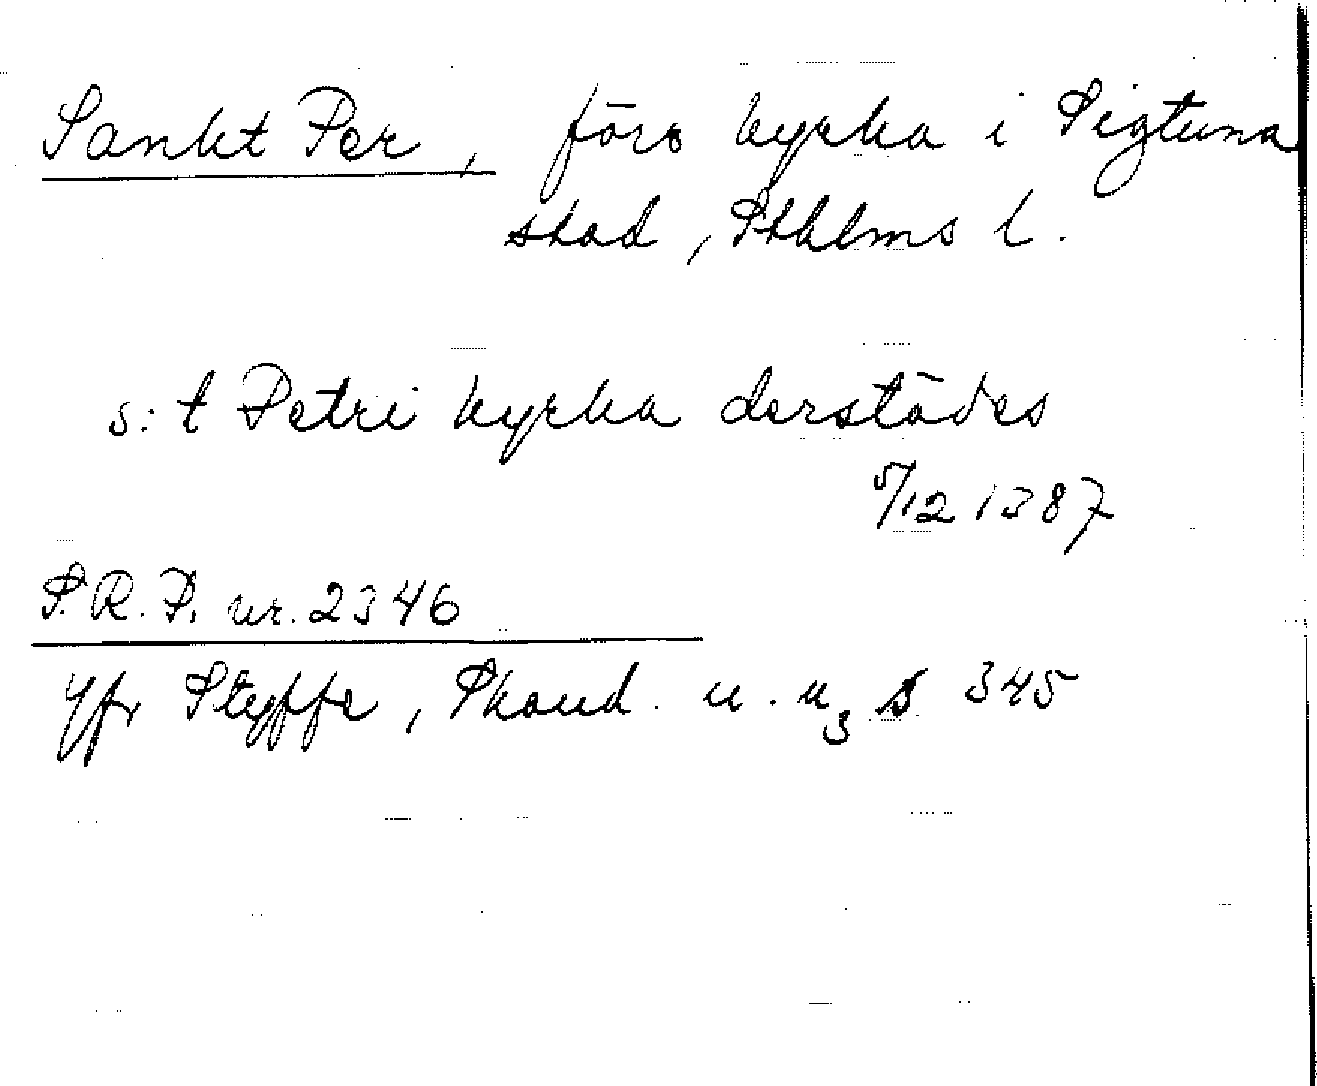 Sankt Per, förs kyrka i Sigtuna
stad, Sthlms l.
s:t Petri kyrka derstädes
5/12 1387
S.R.P. nr. 2346
Jfr Styffe, Skand. u. u3 s 345